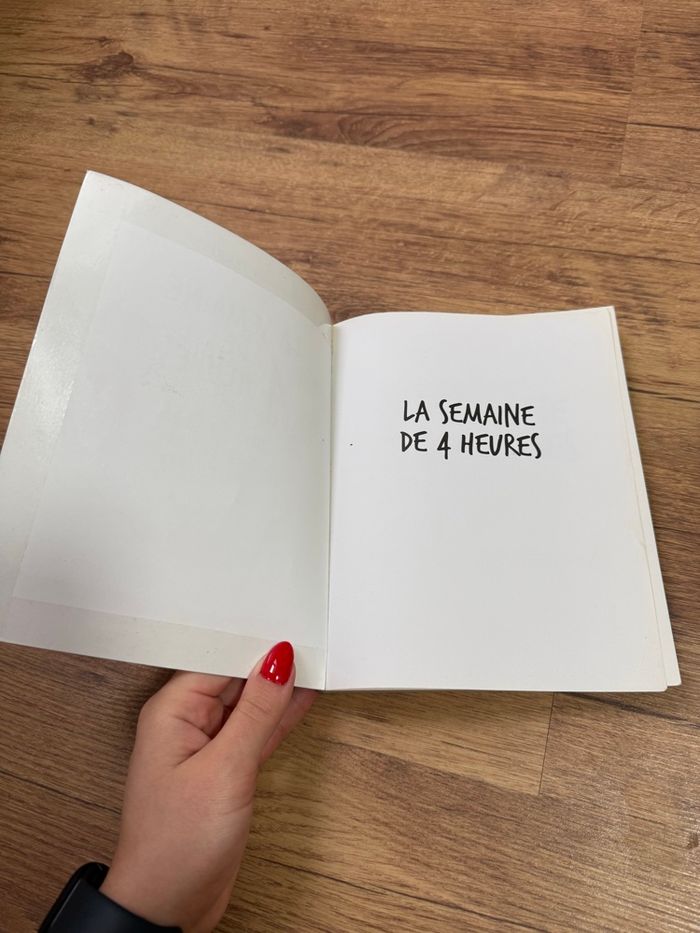 LA SEMAINE
DE 4 HEURES